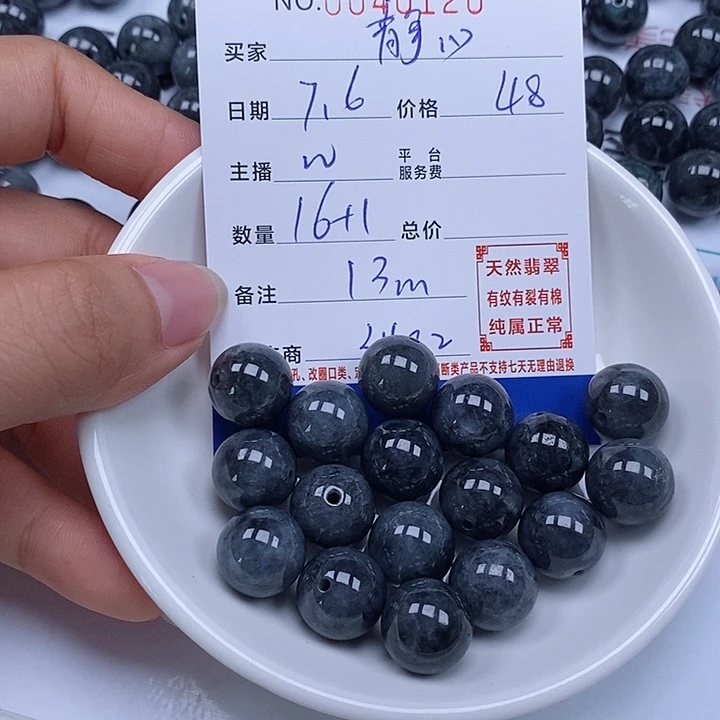 NO.0040120
买家 静心
日期 7.6 价格 48
主播 W 平台服务费
数量 16+1 总价
备注 13m
天然翡翠
有纹有裂有棉
纯属正常
商
孔、改圈口类、
断类产品不支持七天无理由退换